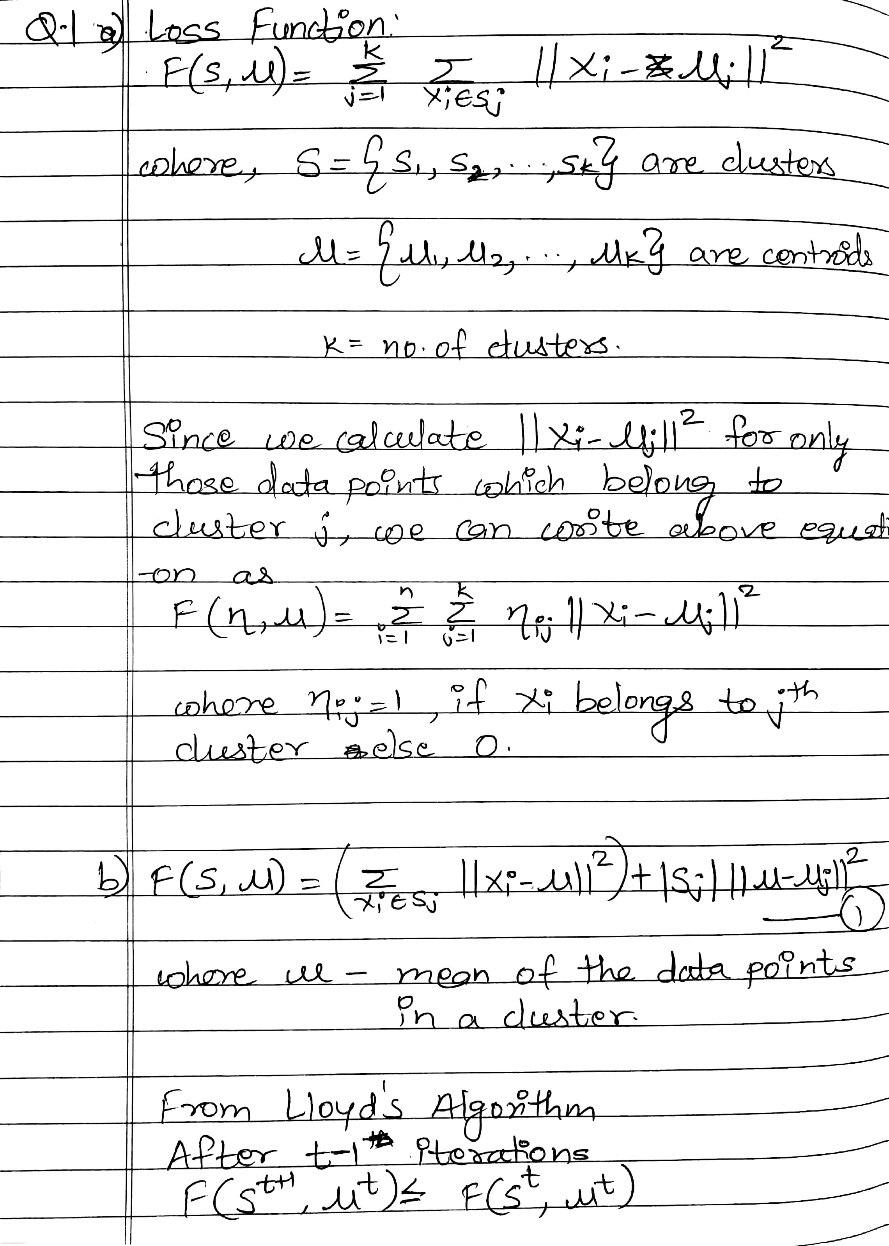 Q.1 a) Loss Function:
F(S, μ) = Σ_{j=1}^{k} Σ_{xi∈Sj} ||xi - μj||²
where, S = {S1, S2, ..., Sk} are clusters
μ = {μ1, μ2, ..., μk} are centroids
k = no. of clusters.
Since we calculate ||xi - μj||² for only
those data points which belong to
cluster j, we can write above equati
-on as
F(η, μ) = Σ_{i=1}^{n} Σ_{j=1}^{k} ηij ||xi - μj||²
where ηij = 1, if xi belongs to jth
cluster else 0.
b) F(S, μ) = (Σ_{xi∈Sj} ||xi - μ||²) + |Sj| ||μ - μj||²
—①
where μ - mean of the data points
in a cluster.
From Lloyd's Algorithm
After t-1 iterations
F(S^{t+1}, μ^t) ≤ F(S^t, μ^t)